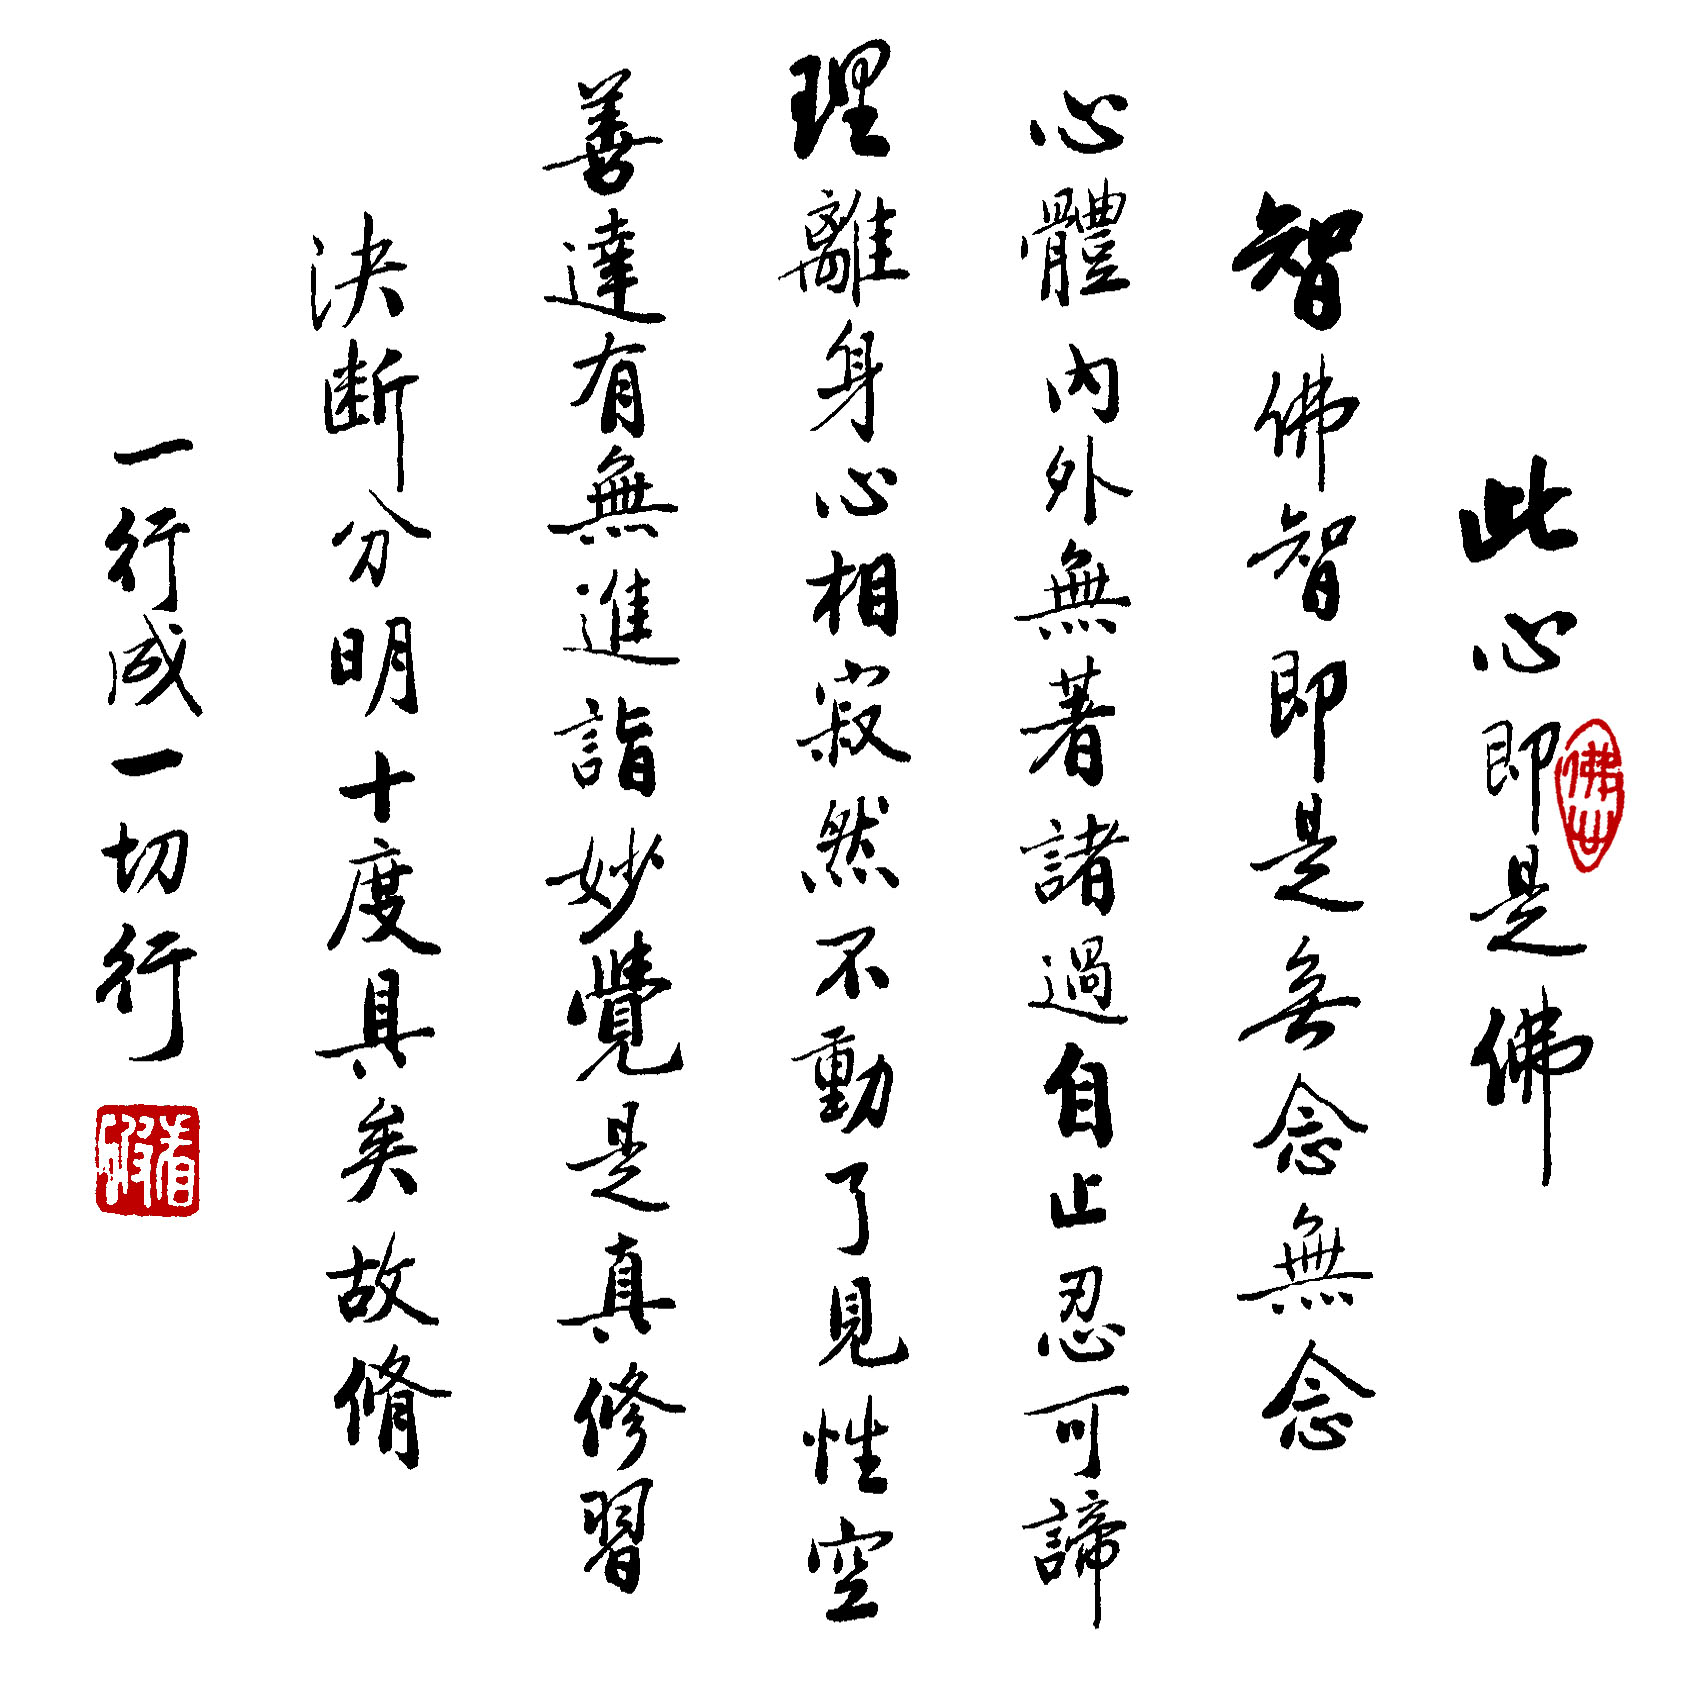 此心即是佛
智佛智智即是無念無念
心體內外無著諸過自止忍可諦
理離身心相寂然不動了見性空
善達有無進詣妙覺是真修習
決斷分明十度具矣故脩
一行成一切行